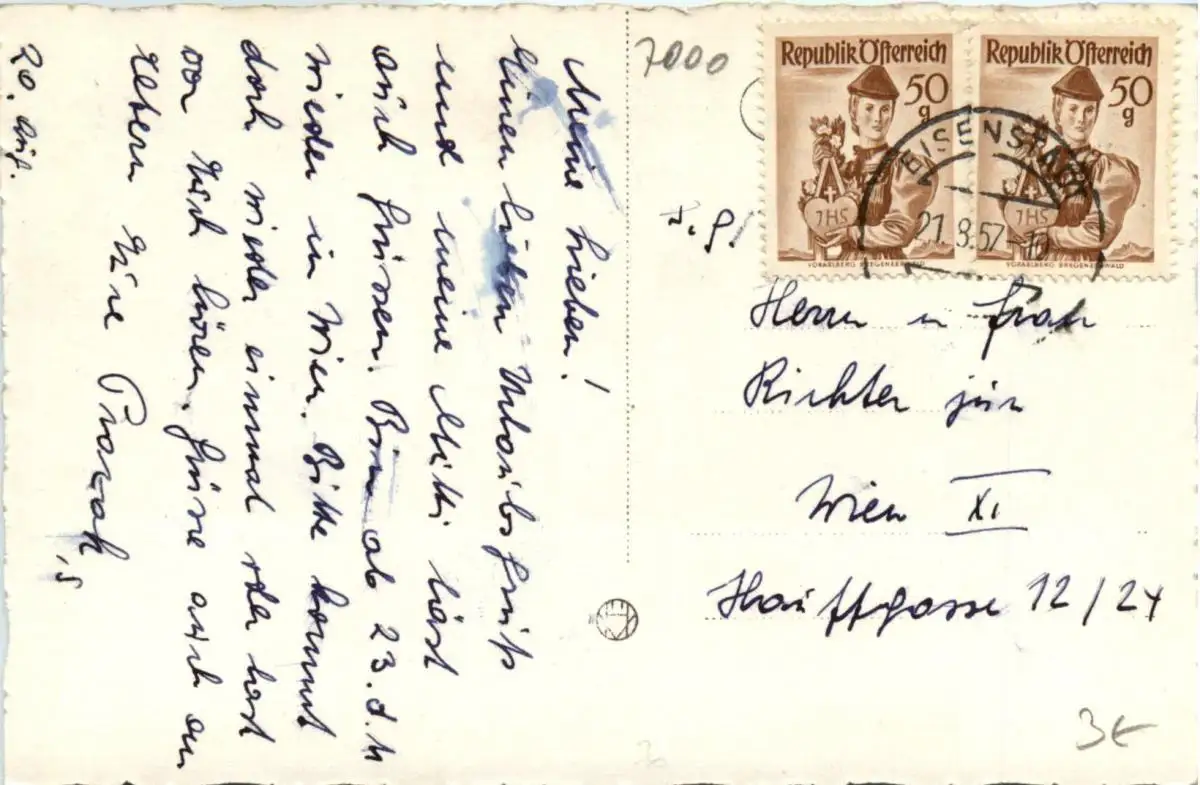 Meine Lieben!
Einen lieben Urlaubsgruß
und meine Mitti lässt
auch grüssen. Bin ab 23. d. M
wieder in Wien. Bitte kommt
doch wieder einmal oder lasst
von Euch hören. Grüsse auch an
Eltern Eure
20. Aug.
7000
Republik Österreich
50
g
VORARLBERG BREGENZERWALD
Republik Österreich
50
g
VORARLBERG BREGENZERWALD
JHS
JHS
EISENSTADT
21.8.57-10
Herrn u Frau
Richter jun
Wien XI
Hauffgasse 12/24
3€